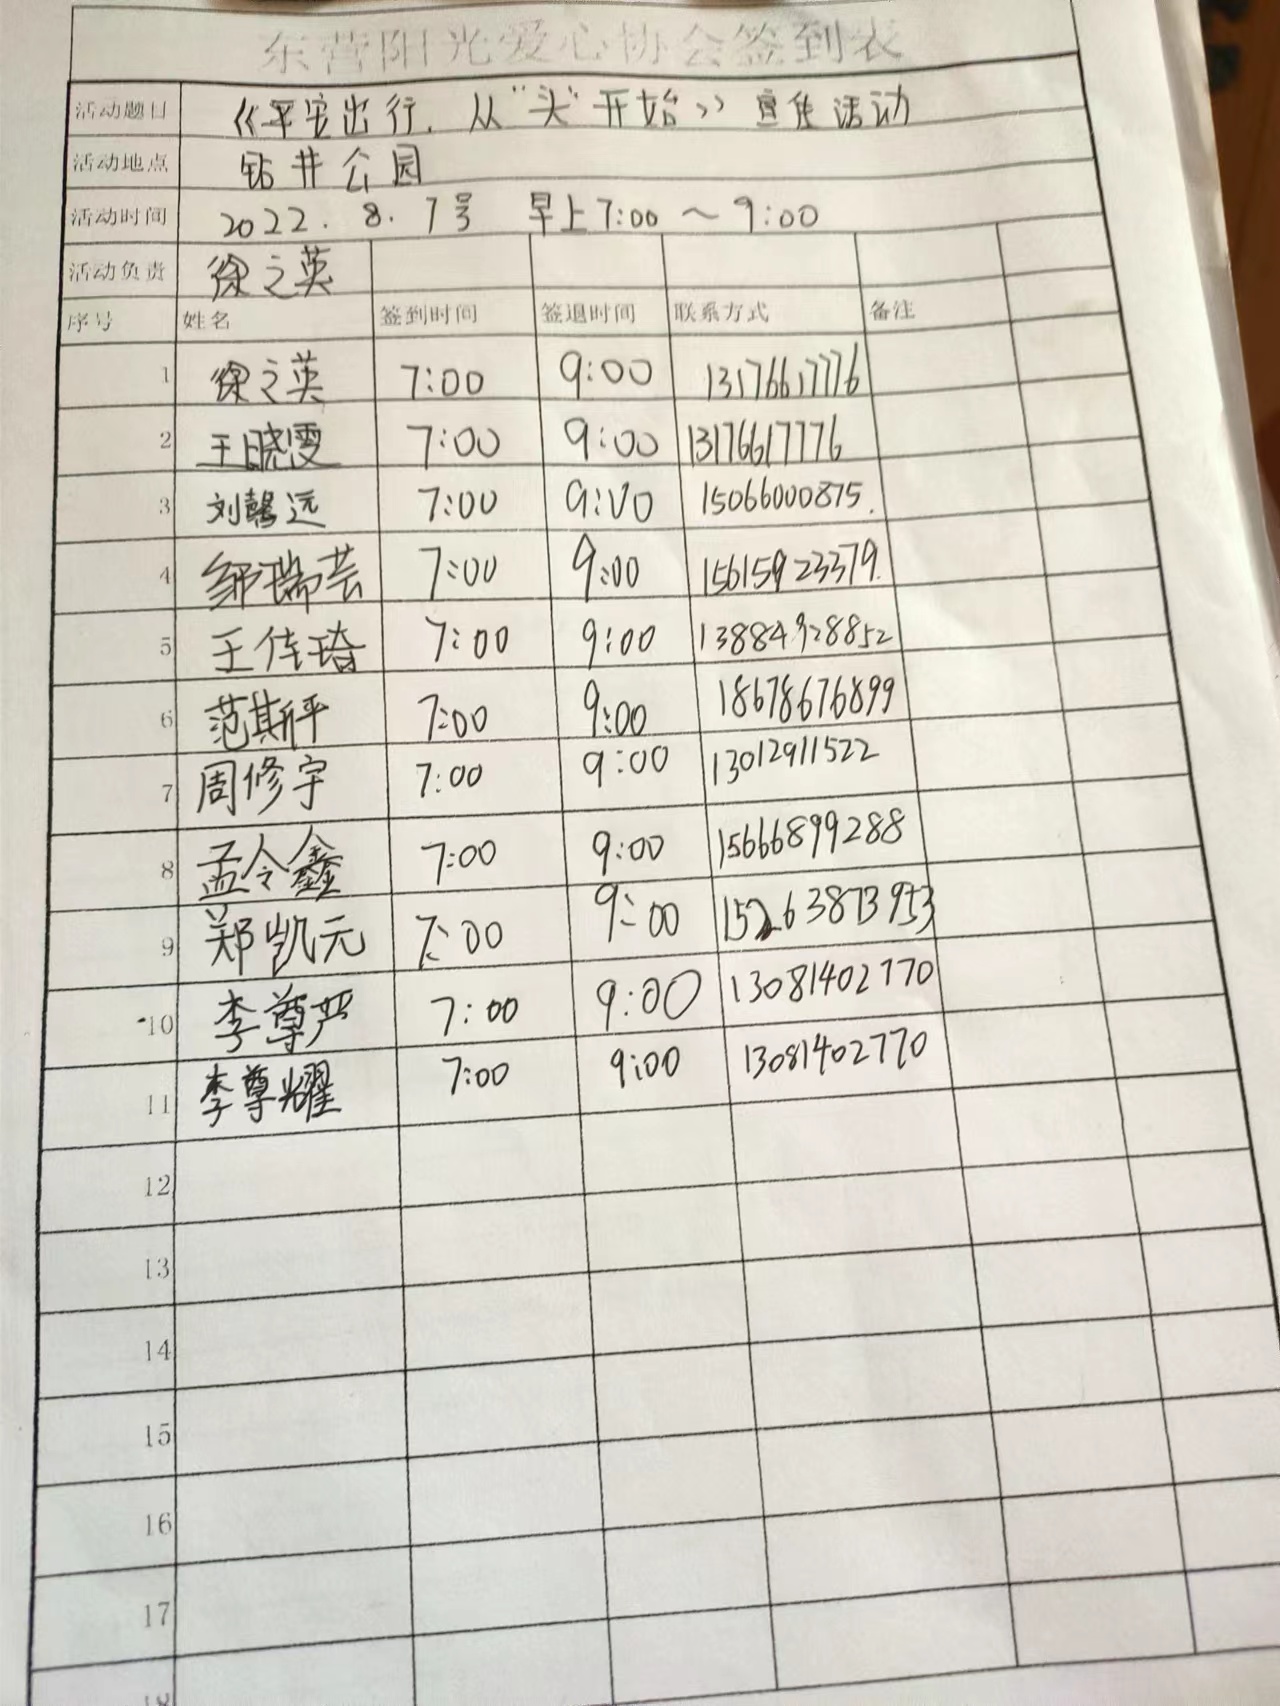 东营阳光爱心协会签到表
活动题目 《平安出行，从“头”开始》宣传活动
活动地点 钻井公园
活动时间 2022.8.7号 早上7:00～9:00
活动负责 徐之英
序号 姓名 签到时间 签退时间 联系方式 备注
1 徐之英 7:00 9:00 13176617776
2 王晓雯 7:00 9:00 13176617776
3 刘馨远 7:00 9:00 15066000875.
4 邹瑞芸 7:00 9:00 15615923379.
5 王佳琦 7:00 9:00 13884928852
6 范斯评 7:00 9:00 18678676899
7 周修宇 7:00 9:00 13012911522
8 孟令鑫 7:00 9:00 15666899288
9 郑凯元 7:00 9:00 15263873953
10 李尊严 7:00 9:00 13081402770
11 李尊耀 7:00 9:00 13081402770
12
13
14
15
16
17
18